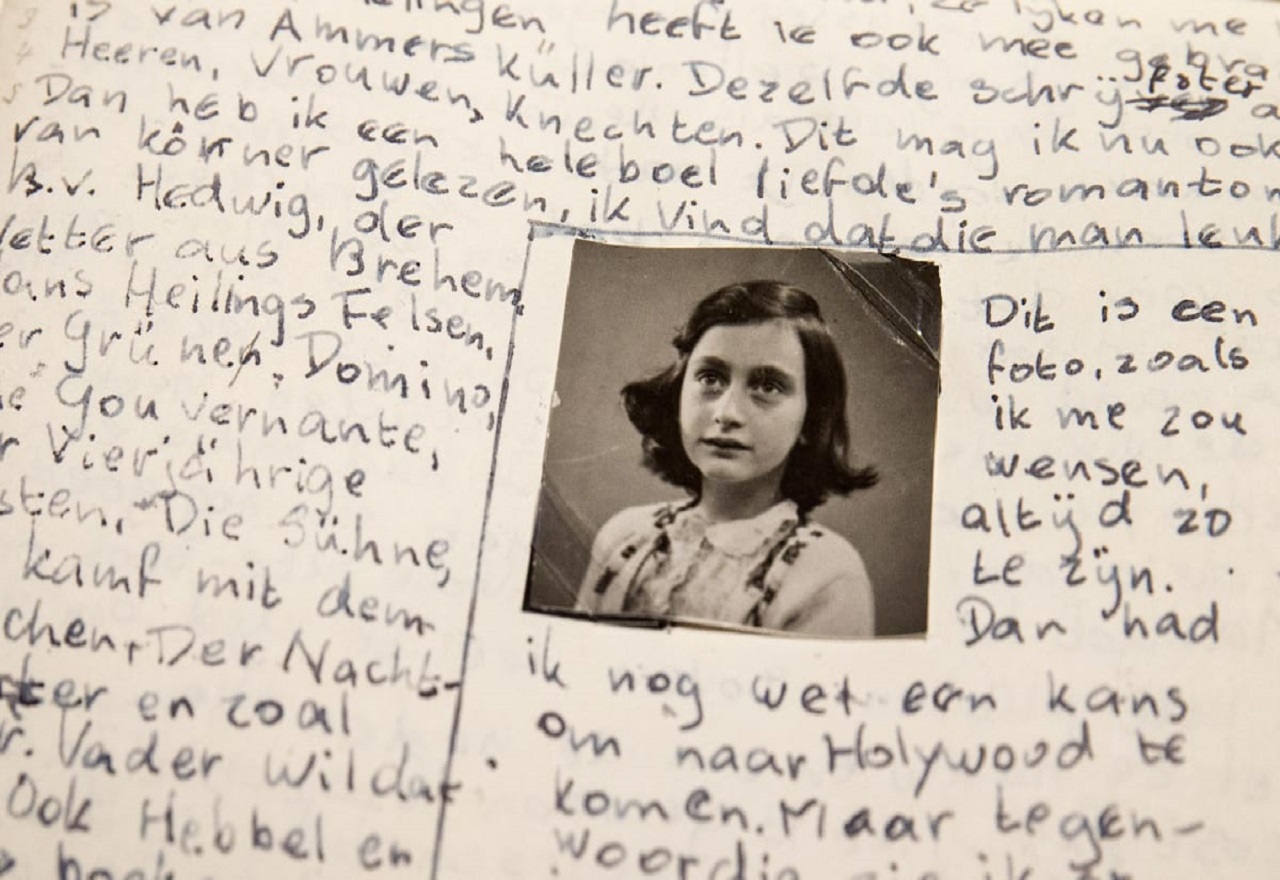 is van Ammers Küller. Dezelfde schrijfster
heeft ie ook mee gebra
Heeren, Vrouwen, Knechten. Dit mag ik nu ook
Dan heb ik een heleboel liefde's romanton
van körner gelezen, ik vind dat die man leuk
B.v. Hedwig, der
Vetter aus Brehem,
ans Heilings Felsen,
er Grünen, Domino,
ie Gouvernante,
r Vierjährige
sten, Die Sühne,
kamf mit dem
chen, Der Nacht-
ter en zoal
r. Vader wil dat
Ook Hebbel en
Dit is een
foto, zoals
ik me zou
wensen,
altijd zo
te zijn.
Dan had
ik nog wet een kans
om naar Holywood te
komen. Maar tegen-
woordig zie ik